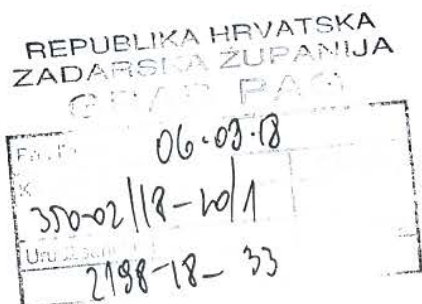 REPUBLIKA HRVATSKA
ZADARSKA ŽUPANIJA
GRAD PAG
06-09-18
350-02/18-20/1
2198-18-33